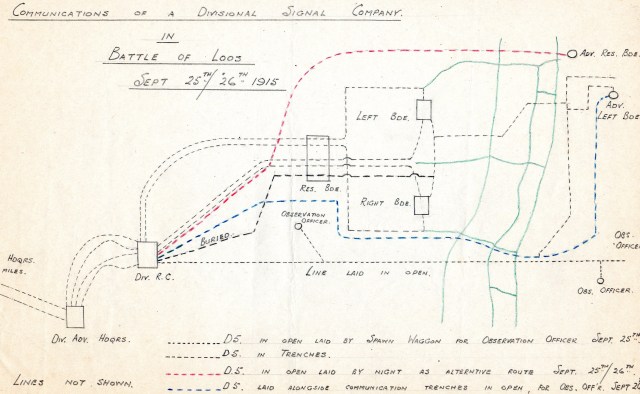 COMMUNICATIONS OF A DIVISIONAL SIGNAL COMPANY.
IN
BATTLE OF LOOS
SEPT 25TH/26TH 1915
ADV. RES. BDE.
ADV.
LEFT BDE
LEFT BDE.
RES. BDE.
RIGHT BDE.
OBSERVATION
OFFICER.
BURIED
OBS.
OFFICE
HDQRS.
MILES.
DIV. R.C.
LINE LAID IN OPEN.
OBS. OFFICER.
DIV. ADV. HDQRS.
D5. IN OPEN LAID BY SPAWN WAGGON FOR OBSERVATION OFFICER SEPT. 25TH.
D5. IN TRENCHES.
D5. IN OPEN LAID BY NIGHT AS ALTERNTIVE ROUTE SEPT. 25TH/26TH.
LINES NOT SHOWN.
D5. LAID ALONGSIDE COMMUNICATION TRENCHES IN OPEN, FOR OBS. OFFR. SEPT 26